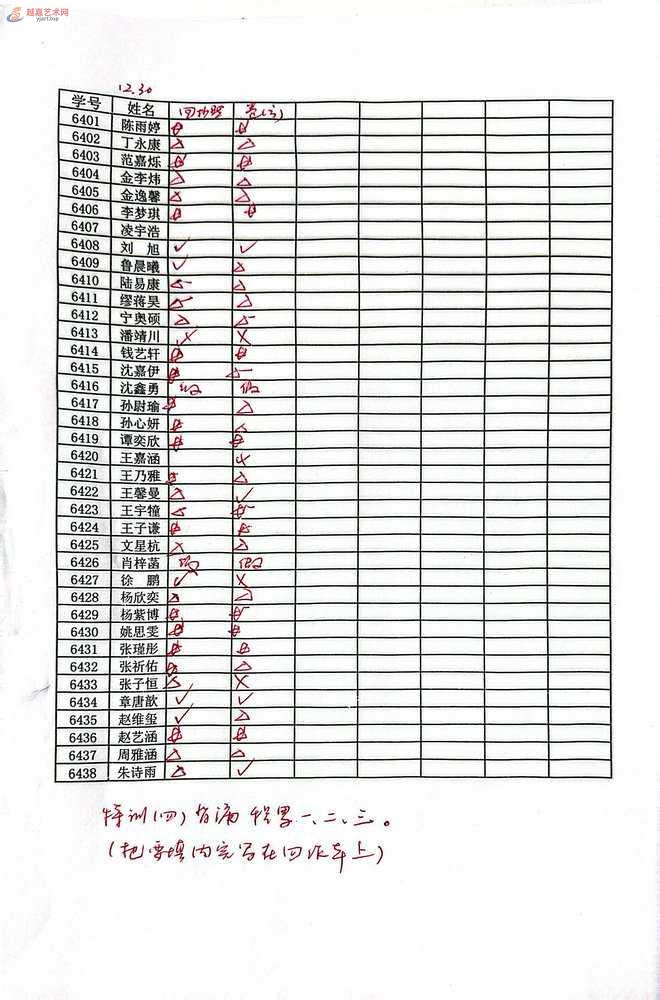 越嘉艺术网
yjart.top
12.30
学号 姓名
6401 陈雨婷
6402 丁永康 △ △
6403 范嘉烁
6404 金李炜 △ △
6405 金逸馨 △ △
6406 李梦琪
6407 凌宇浩
6408 刘 旭 ✓ ✓
6409 鲁晨曦 ✓ △
6410 陆易康 △ △
6411 缪蒋昊 △ △
6412 宁奥硕 △ △
6413 潘靖川 ✗ ✗
6414 钱艺轩
6415 沈嘉伊
6416 沈鑫勇 假 假
6417 孙尉瑜 △
6418 孙心妍
6419 谭奕欣
6420 王嘉涵
6421 王乃雅 △
6422 王馨曼 △ ✓
6423 王宇犝
6424 王子谦
6425 文星杭 ✗ △
6426 肖梓菡 假 假
6427 徐 鹏 ✓ ✗
6428 杨欣奕 △ △
6429 杨紫博
6430 姚思雯
6431 张瑾彤
6432 张祈佑 △
6433 张子恒 △ ✗
6434 章唐歆 ✓ ✓
6435 赵维玺 ✓ △
6436 赵艺涵
6437 周雅涵 △ △
6438 朱诗雨 △ ✓
特训(四)背诵 积累一、二、三。
(把要填内容写在回作本上)